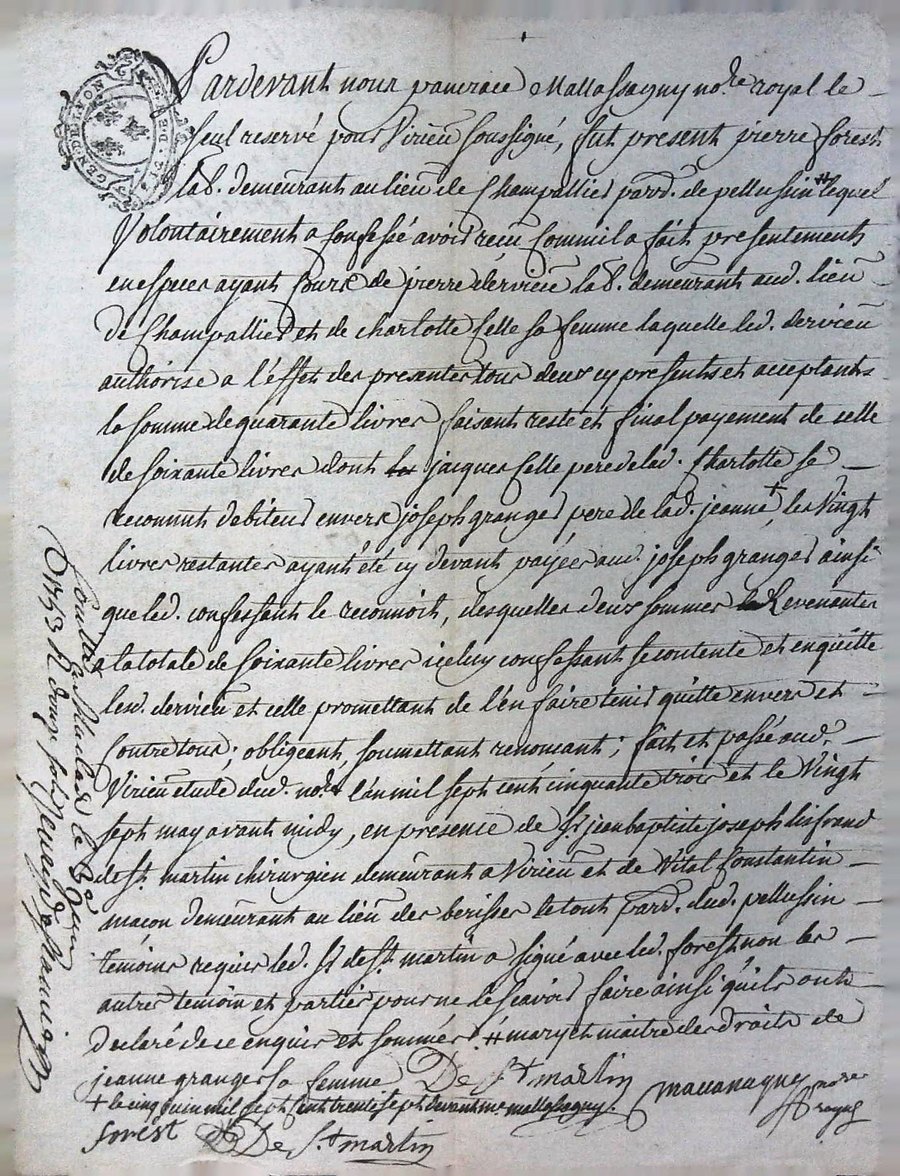 GEN. DE LYON
Pardevant nous pancrace Mallassagny no.re royal le
Seul reservé pour Virieu soussigné, fut present pierre forest
lab. demeurant au lieu de Champallier paro. de pellussin # lequel
Volontairement a Confessé avoir reçu Comm il a fait presentement
en especes ayant Cours de pierre dervieu lab. demeurant aud. lieu
de Champallier et de charlotte Celle sa femme laquelle led. dervieu
authorise a l'effet des presentes tous deux cy presents et acceptants
la somme de quarante livres faisant reste et final payement de celle
de soixante livres dont jacques Celle pere de lad. Charlotte se
reconnut debiteur envers joseph granger pere de lad. jeanne +, les Vingt
livres restantes ayant été cy devant payées aud. joseph granger ainsi
que led. confessant le reconnoit, desquelles deux sommes Revenantes
a la totale de soixante livres iceluy confessant se contente et en quitte
lesd. dervieu et celle promettant de l'en faire tenir quitte envers et
Contre tous; obligeant, soumettant renonçant; fait et passé aud.
Virieu etude dud. no.re l'an mil sept cent cinquante trois et le Vingt
sept may avant midy, en presence de Sr jean baptiste joseph lisfrand
de St. martin chirurgien demeurant a Virieu et de Vital Constantin
macon demeurant au lieu des berisses le tout paro. dud. pellussin
temoins requis led. Sr de St. martin a signé avec led. forest non les
autres temoin et parties pour ne le scavoir faire ainsi qu'ils ont
declaré de ce enquis et sommés. # mary et maitre des droits de
jeanne granger sa femme De St martin
+ le cinq juin mil sept Cent trente sept devant me mallassagny.
forest De St martin
no.re
royal
Controllé a le
1753 R douze sols